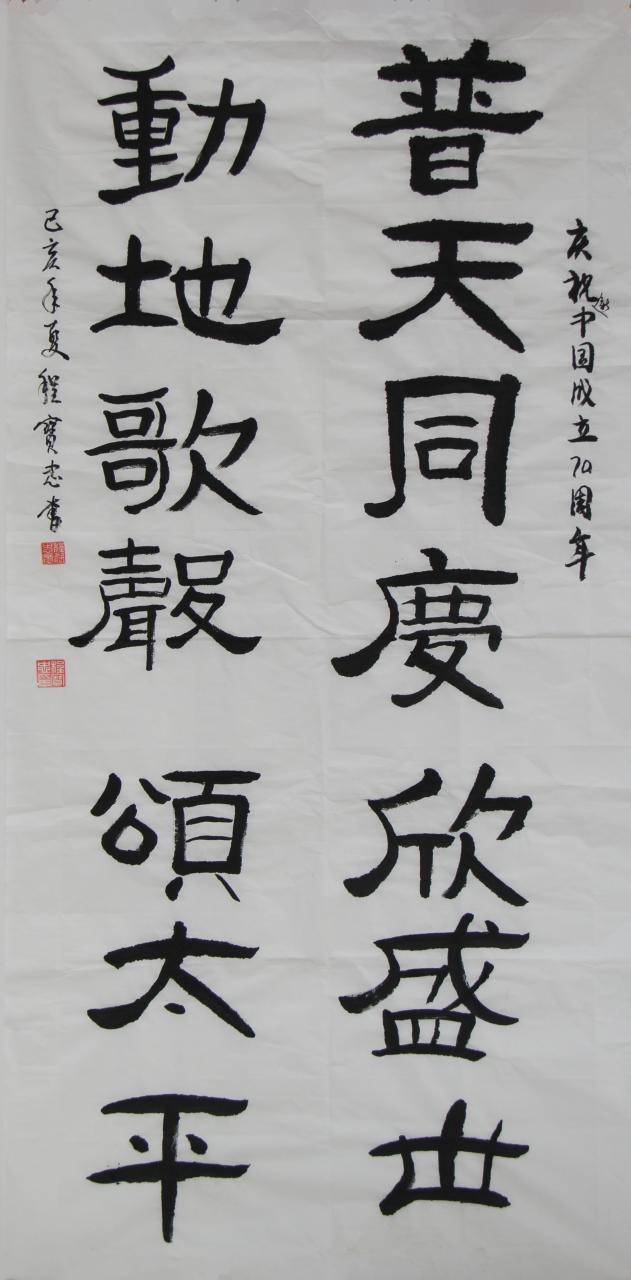 庆祝新中国成立70周年
普天同慶欣盛世
動地歌聲頌太平
己亥年夏程寶忠書